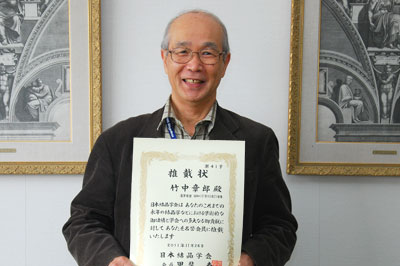 第41号
推戴状
竹中章郎 殿
日本結晶学会は あなたのこれまでの
永年の結晶学などにおける学術的な
御功績と学会への多大なる御貢献に
対して あなたを名誉会員に推戴
いたします
2011年11月24日
日本結晶学会
会長